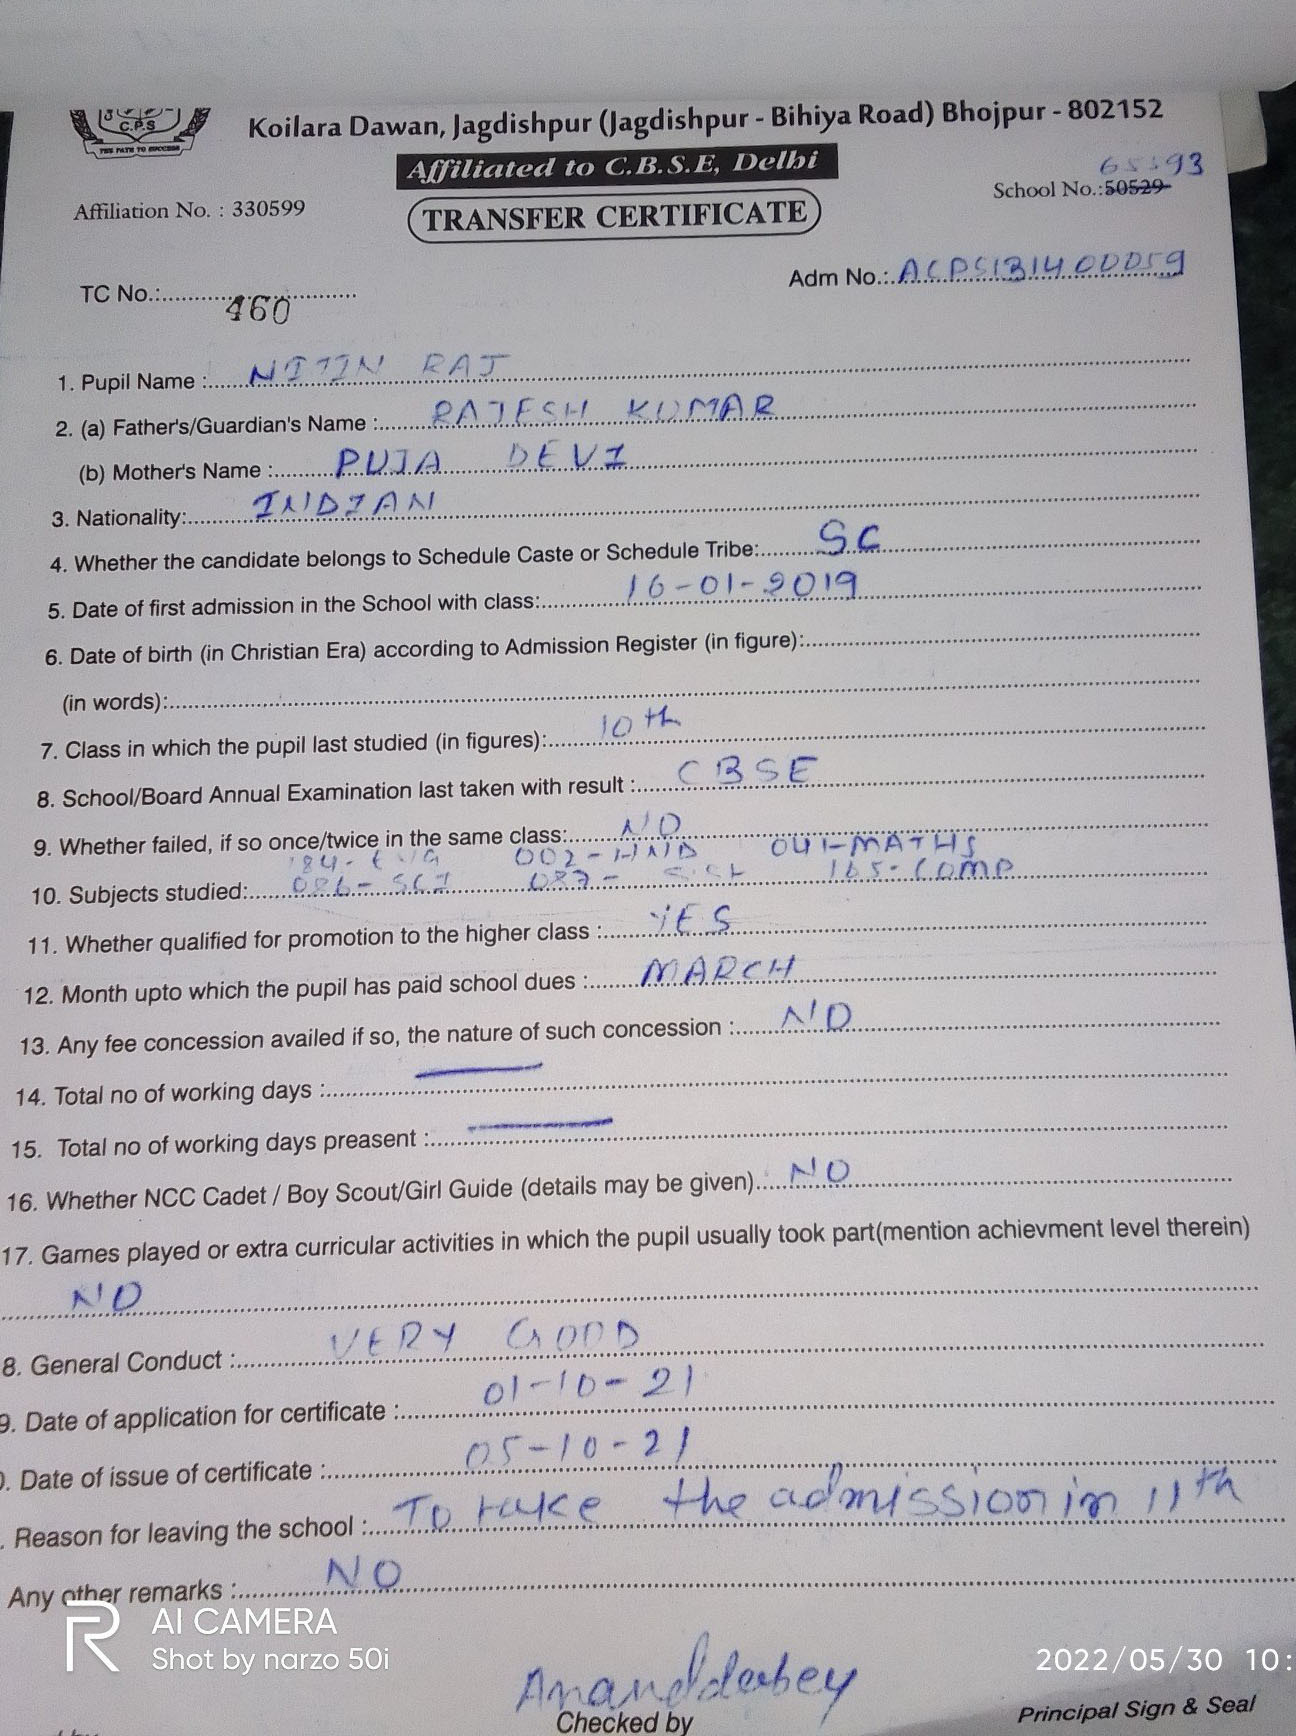 C.P.S
THE PATH TO SUCCESS
Koilara Dawan, Jagdishpur (Jagdishpur - Bihiya Road) Bhojpur - 802152
Affiliated to C.B.S.E, Delhi
Affiliation No. : 330599
School No.:50529
TRANSFER CERTIFICATE
TC No.: 460
Adm No.: ACPS131400059
1. Pupil Name : NITIN RAJ
2. (a) Father's/Guardian's Name : RAJESH KUMAR
(b) Mother's Name : PUJA DEVI
3. Nationality: INDIAN
4. Whether the candidate belongs to Schedule Caste or Schedule Tribe: SC
5. Date of first admission in the School with class: 16-01-2019
6. Date of birth (in Christian Era) according to Admission Register (in figure):
(in words):
7. Class in which the pupil last studied (in figures): 10th
8. School/Board Annual Examination last taken with result : CBSE
9. Whether failed, if so once/twice in the same class: NO
184-ENG 002-HIND 041-MATHS
10. Subjects studied: 086-SCI 087- 165-COMP
11. Whether qualified for promotion to the higher class : YES
12. Month upto which the pupil has paid school dues : MARCH
13. Any fee concession availed if so, the nature of such concession : NO
14. Total no of working days :
15. Total no of working days preasent :
16. Whether NCC Cadet / Boy Scout/Girl Guide (details may be given) NO
17. Games played or extra curricular activities in which the pupil usually took part(mention achievment level therein)
NO
8. General Conduct : VERY GOOD
9. Date of application for certificate : 01-10-21
. Date of issue of certificate : 05-10-21
. Reason for leaving the school : To take the admission in 11th
Any other remarks : NO
AI CAMERA
Shot by narzo 50i
2022/05/30 10:
Checked by
Principal Sign & Seal